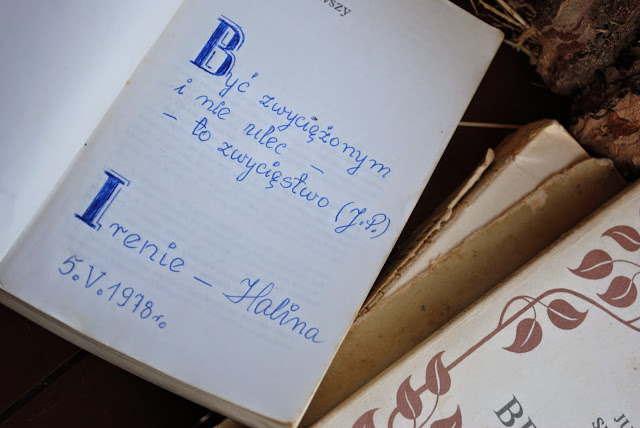 wszy
Być zwyciężonym
i nie ulec –
– to zwycięstwo (J.P.)
Irenie – Halina
5.V.1978r.
BE
JU